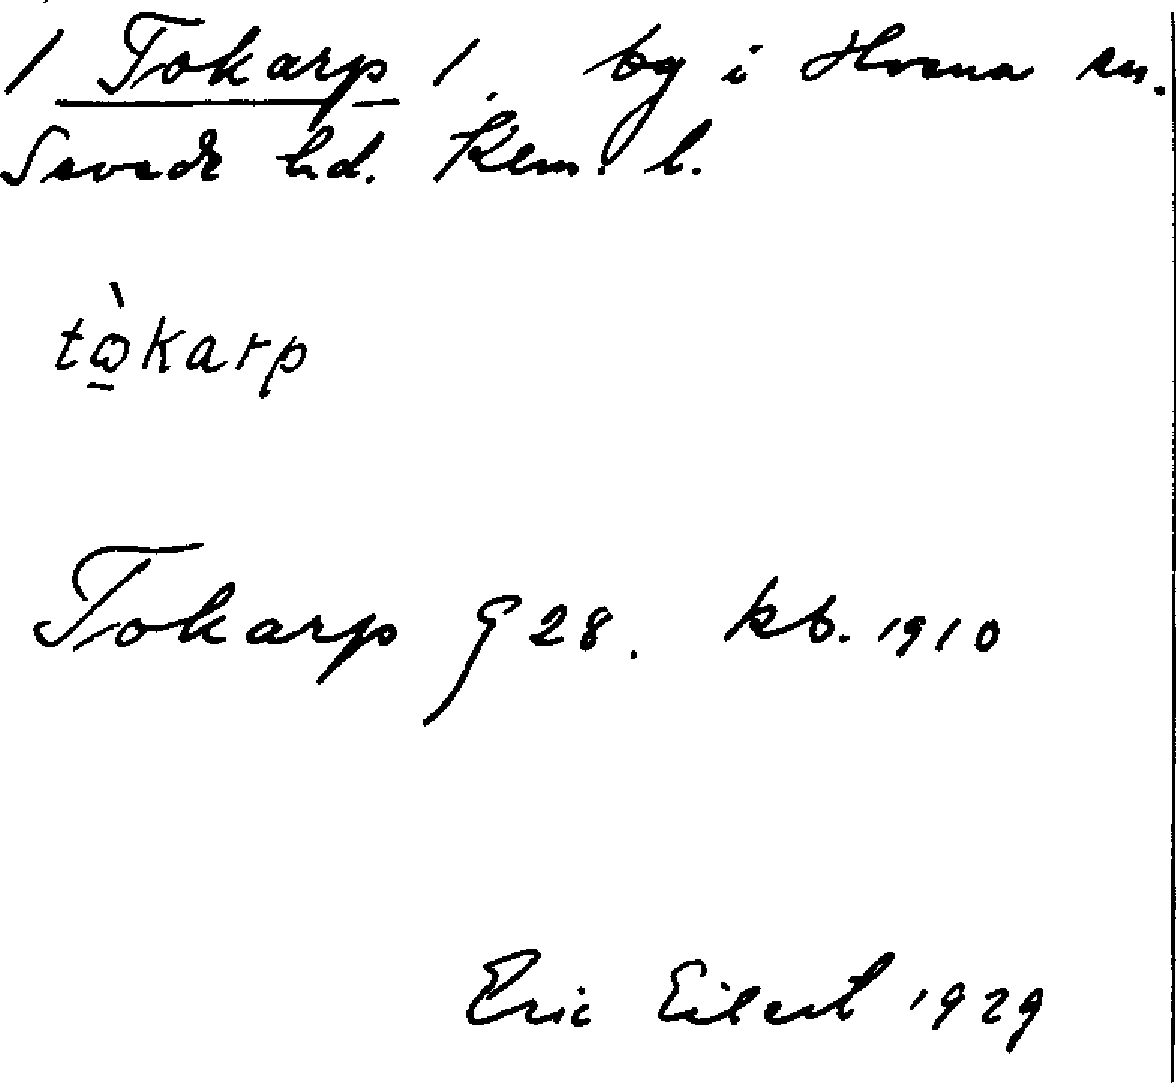 / Tokarp /, by i Hvena sn.
Sevede hd. Klm. l.
tò̱karp
Tokarp 28. kb. 1910
Eric Eilert 1929